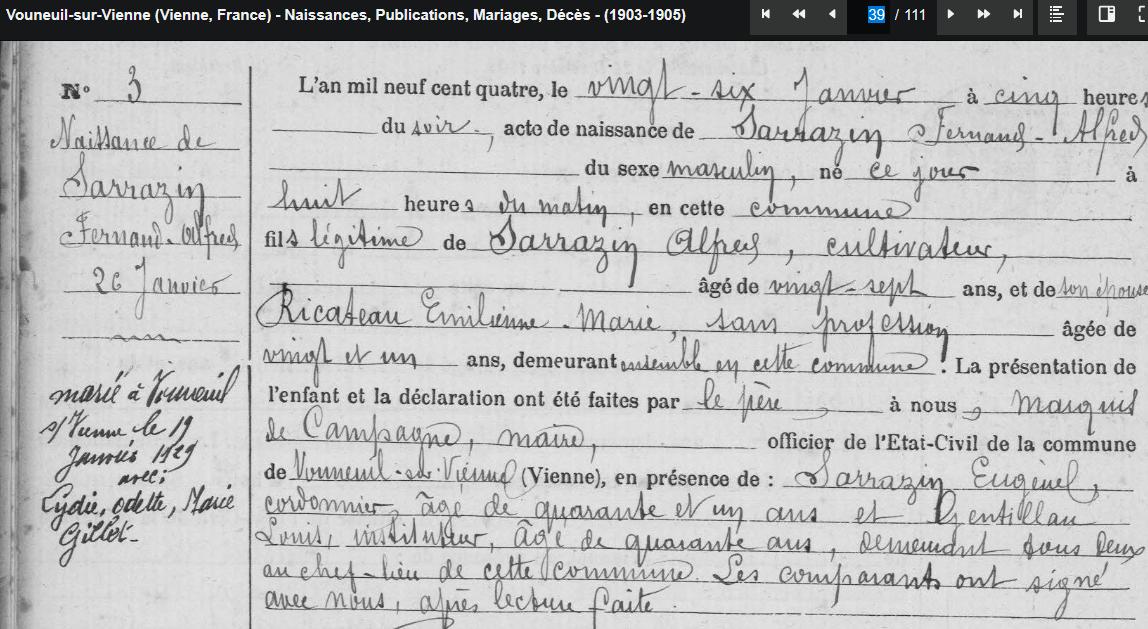 Vouneuil-sur-Vienne (Vienne, France) - Naissances, Publications, Mariages, Décès - (1903-1905)
39 / 111
N° 3
Naissance de
Sarrazin
Fernand-Alfred
26 Janvier
marié à Vouneuil
s/ Vienne le 19
Janvier 1929
avec:
Lydie, odette, Marie
Gillet-
L'an mil neuf cent quatre, le vingt-six Janvier à cinq heures
du soir, acte de naissance de Sarrazin Fernand-Alfred
du sexe masculin, né ce jour à
huit heures du matin, en cette commune
fils légitime de Sarrazin Alfred, cultivateur,
âgé de vingt-sept ans, et de son épouse
Ricateau Emilienne-Marie, sans profession âgée de
vingt et un ans, demeurant ensemble en cette commune. La présentation de
l'enfant et la déclaration ont été faites par le père, à nous, Marquis
de Campagne, maire, officier de l'Etat-Civil de la commune
de Vouneuil-sur-Vienne (Vienne), en présence de : Sarrazin Eugène,
cordonnier, âgé de quarante et un ans et Gentillau
Louis, instituteur, âgé de quarante ans, demeurant tous deux
au chef-lieu de cette commune. Les comparants ont signé
avec nous, après lecture faite.